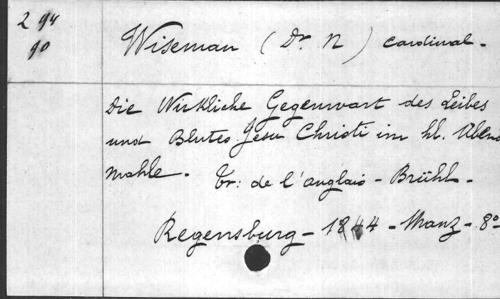 2 94
90
Wiseman (Dr. N) cardinal.
Die Wirkliche Gegenwart des Leibes
und Blutes Jesu Christi im hl. Abend
mahle. Tr: de l'anglais - Brühl.
Regensburg - 1844 - Manz - 8º